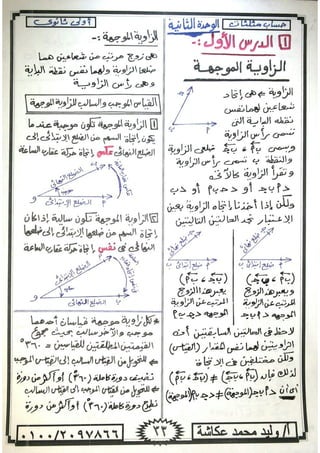 حساب مثلثات
الوحدة الثانية
أولى ثانوى
١ الدرس الأول :-
الزاوية الموجهة
الزاوية هى إتحاد
شعاعين لهما نفس
نقطة البداية التى
تسمى رأس الزاوية
والنقطة ب تسمى رأس الزاوية
وتقرأ الزاوية كالآتى
ولكن إذا أخذنا إتجاه الزاوية بعين
الإعتبار نجد الحالتين التاليتين
ضلع نهائى
ضلع إبتدائى
ويعبر هذا الزوج
المرتب عن الزاوية
الموجهة
يعبر هذا الزوج
المرتب عن الزاوية
الموجهة
لاحظ فى الحالتين السابقتين أن
الزاويتين لهما نفس المقدار (القياس)
ولكن مختلفتين فى الإتجاه
لذلك فإن
الزاوية الموجهة :-
هى زوج مرتب من شعاعين هما
ضلعا الزاوية ولهما نفس نقطة البداية
وهى رأس الزاوية
القياس الموجب والسالب للزاوية الموجهة
١ الزاوية الموجهة تكون موجبة عندما
يكون إتجاه السهم من الضلع الإبتدائى إلى
الضلع النهائى عكس إتجاه حركة عقارب الساعة
٢ الزاوية الموجهة تكون سالبة إذا كان
إتجاه السهم من ضلعها الإبتدائى إلى ضلعها
النهائى فى نفس إتجاه حركة عقارب الساعة
الضلع الإبتدائى
الضلع النهائى
* لكل زاوية موجهة قياسان أحدهما
موجب والآخر سالب بحيث مجموع
القيمتين المطلقتين للقياسين = ٣٦٠°
* للتحويل من القياس السالب إلى القياس الموجب
نضيف دورة كاملة (٣٦٠) أو أكثر من دورة
* للتحويل من القياس الموجب إلى القياس السالب
نطرح دورة كاملة (٣٦٠) أو أكثر من دورة
أ/ وليد محمد عكاشة
٢٢
٠١٠٠/٢٠٩٧٨٦٦